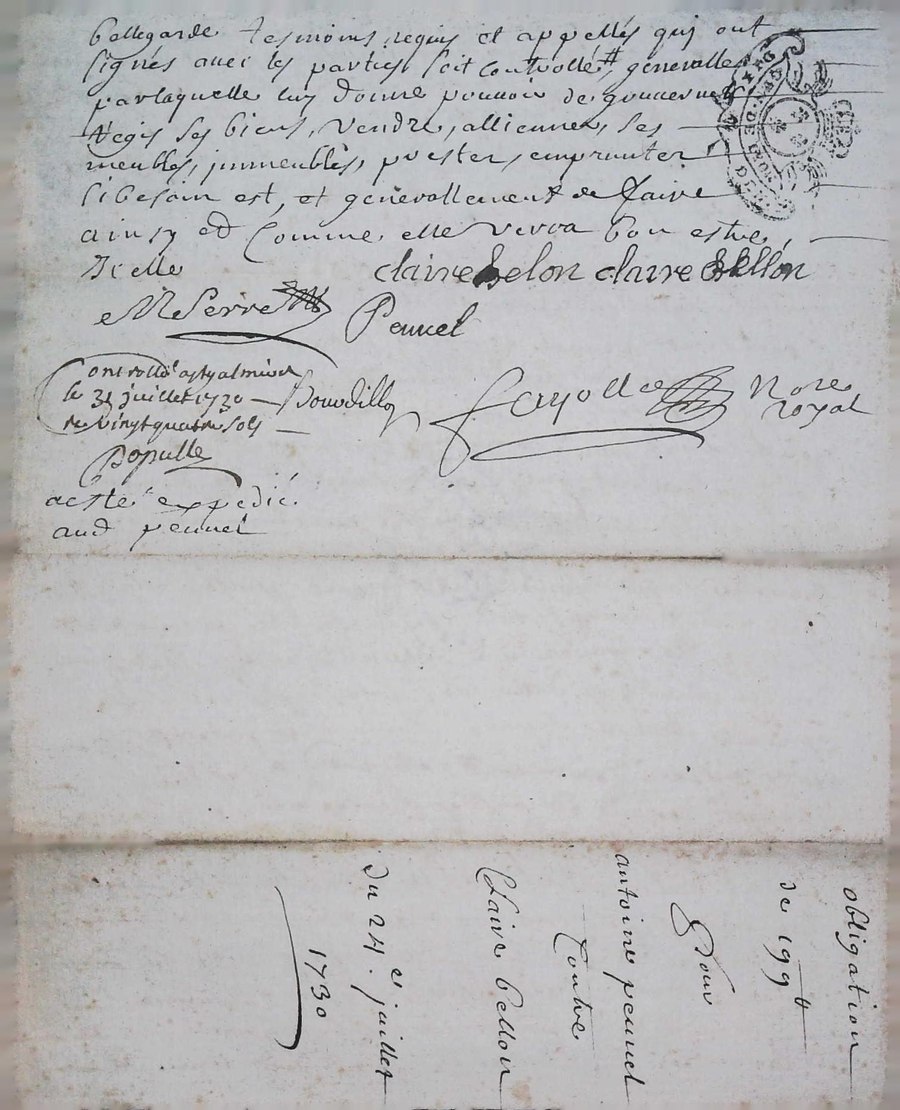 bellegarde tesmoins requis et appellés qui ont
signés avec les parties soit controllé # generalle
par laquelle luy donne pouvoir de gouverner
Regir ses biens, vendre, allienner, ses
meubles, immeubles, prester, emprunter
si besoin est, et generallement de faire
ainsy et comme elle verra bon estre,
Icelle
claire belon claire bellon
Serre
Peuvel
Controllé
le 31 juillet 1730
re vingt quatre sols
Bourdillon
fayolle Nore
royal
Populle
acste expedié
aud peuvel
obligation
de 199 ₶
Pour
antoine peuvel
Contre
Claire bellon
du 24.e juillet
1730